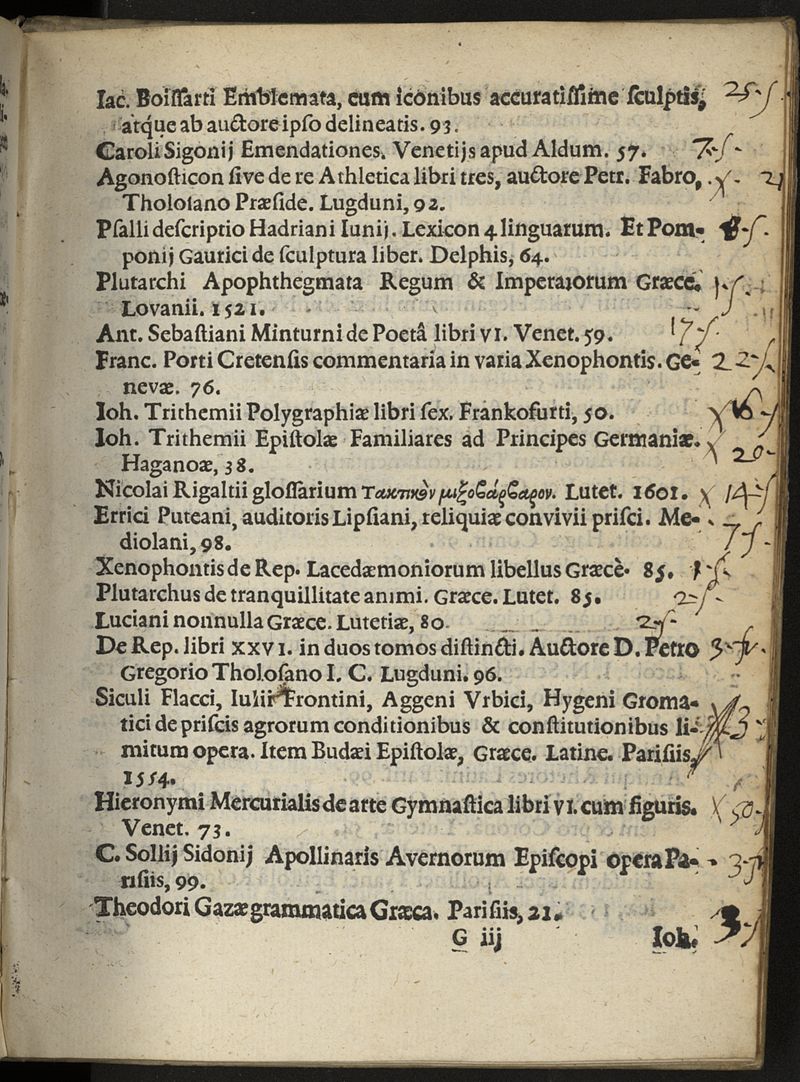 Iac. Boiſſarti Emblemata, cum iconibus accuratiſſime ſculptis, 25-ſ
atque ab auctore ipſo delineatis. 93.
Caroli Sigonij Emendationes. Venetijs apud Aldum. 57. 7-ſ-
Agonoſticon ſive de re Athletica libri tres, auctore Petr. Fabro,
Tholoſano Præſide. Lugduni, 92.
Pſalli deſcriptio Hadriani Iunij. Lexicon 4 linguarum. Et Pom-
ponij Gaurici de ſculptura liber. Delphis, 64.
Plutarchi Apophthegmata Regum & Imperatorum Græce.
Lovanii. 1521.
Ant. Sebaſtiani Minturni de Poetâ libri VI. Venet. 59. 17-ſ-
Franc. Porti Cretenſis commentaria in varia Xenophontis. Ge- 22-ſ
nevæ. 76.
Ioh. Trithemii Polygraphiæ libri ſex. Frankofurti, 50.
Ioh. Trithemii Epiſtolæ Familiares ad Principes Germaniæ. 20-
Haganoæ, 38.
Nicolai Rigaltii gloſſarium τακτικὸν μιξοβάρβαρον. Lutet. 1601. x 14-ſ
Errici Puteani, auditoris Lipſiani, reliquiæ convivii priſci. Me-
diolani, 98. 7ſ-
Xenophontis de Rep. Lacedæmoniorum libellus Græcè. 85.
Plutarchus de tranquillitate animi. Græce. Lutet. 85. 2-ſ-
Luciani nonnulla Græce. Lutetiæ, 80 2-ſ-
De Rep. libri XXVI. in duos tomos diſtincti. Auctore D. Petro
Gregorio Tholoſano I. C. Lugduni. 96.
Siculi Flacci, Iulii Frontini, Aggeni Vrbici, Hygeni Groma-
tici de priſcis agrorum conditionibus & conſtitutionibus li-
mitum opera. Item Budæi Epiſtolæ, Græce. Latine. Pariſiis,
1554.
Hieronymi Mercurialis de arte Gymnaſtica libri VI. cum figuris. X 50-ſ
Venet. 73.
C. Sollij Sidonij Apollinaris Avernorum Epiſcopi opera Pa- 3-ſ
riſiis, 99.
Theodori Gazæ grammatica Græca. Pariſiis, 21. 3-ſ
G iij Ioh.